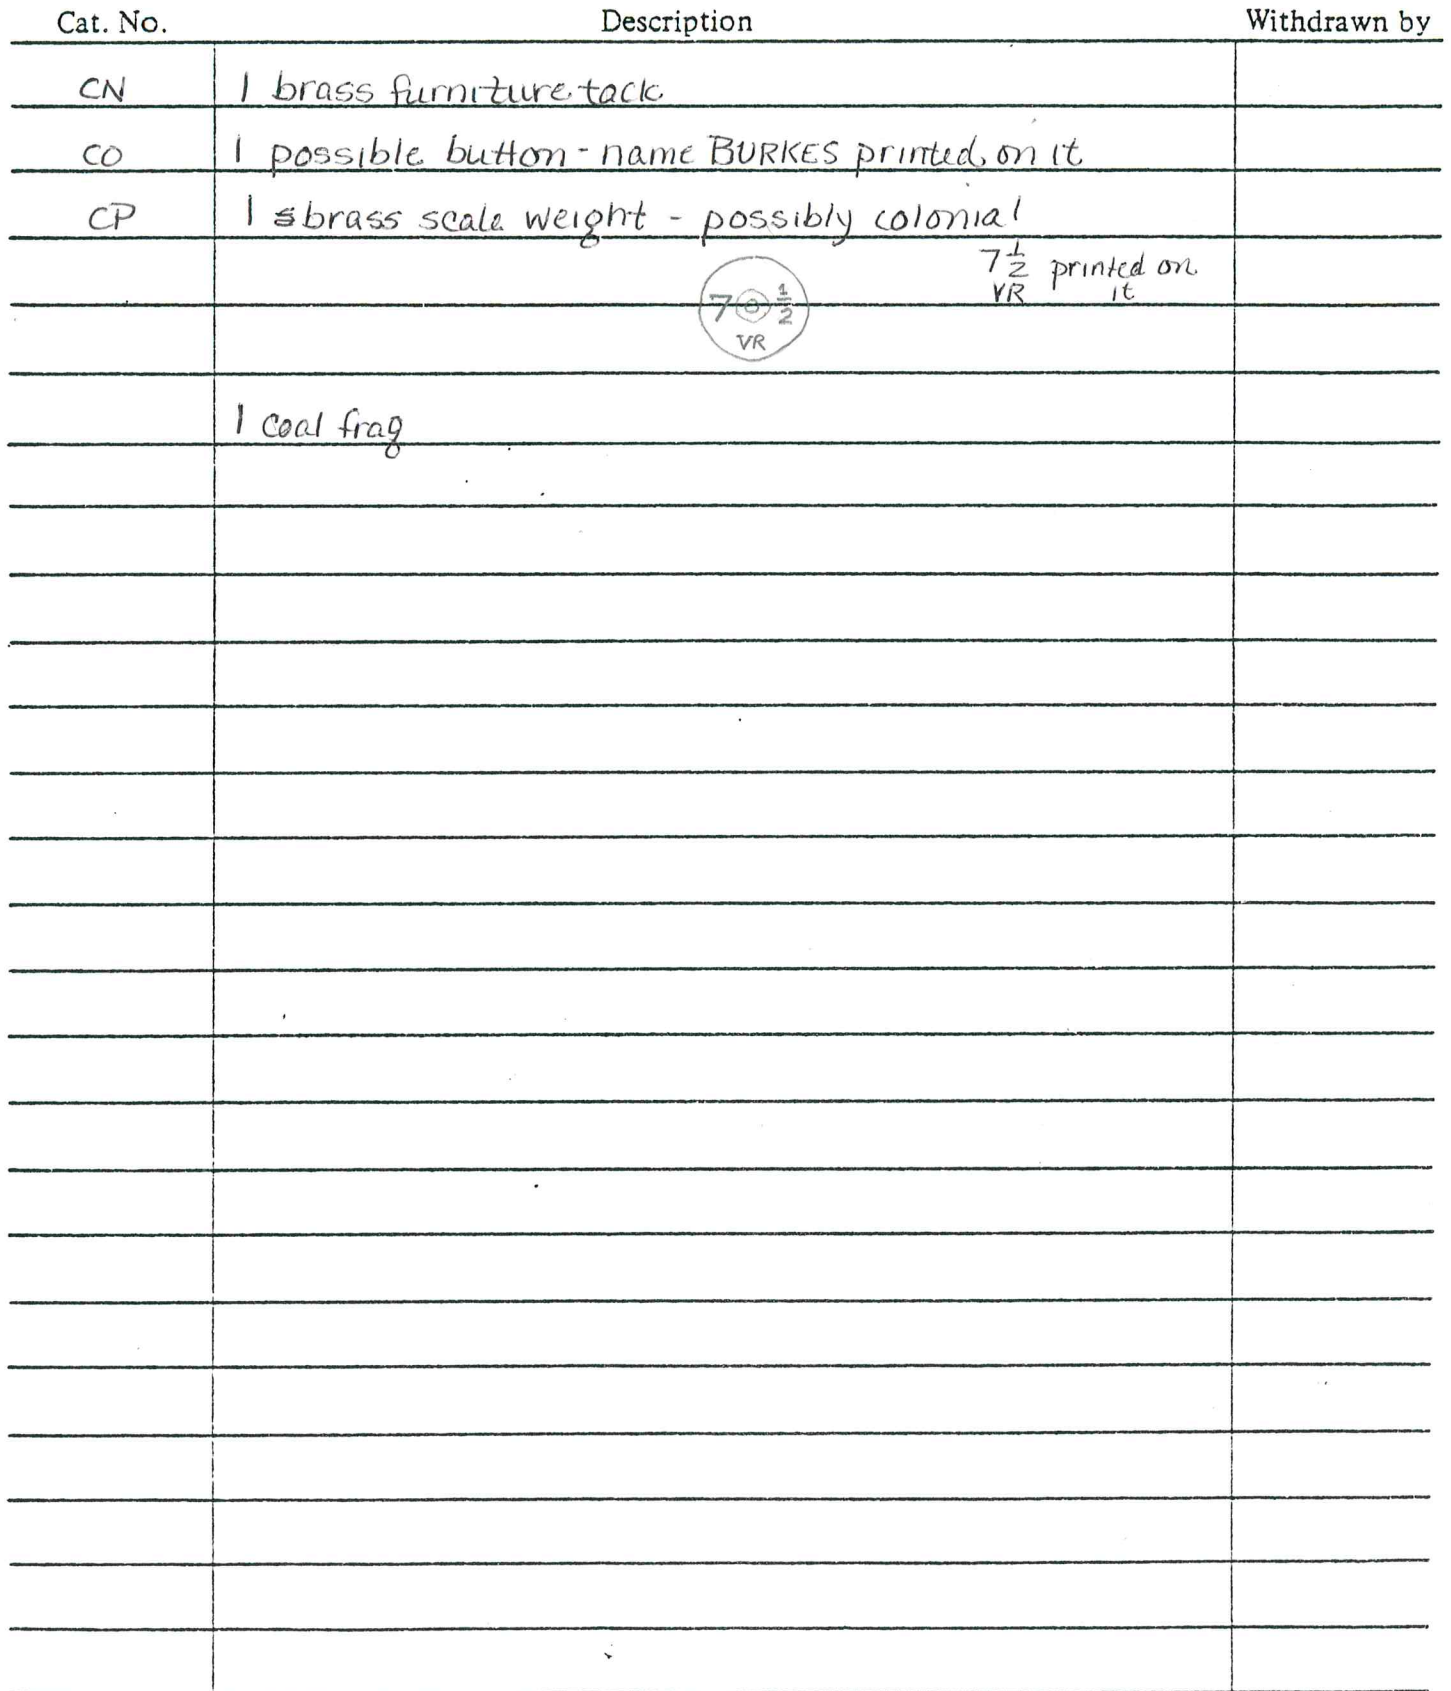 Cat. No. Description Withdrawn by
CN 1 brass furniture tack
CO 1 possible button - name BURKES printed on it
CP 1 brass scale weight - possibly colonial
7 1/2 printed on
VR it
7 1/2
VR
1 coal frag